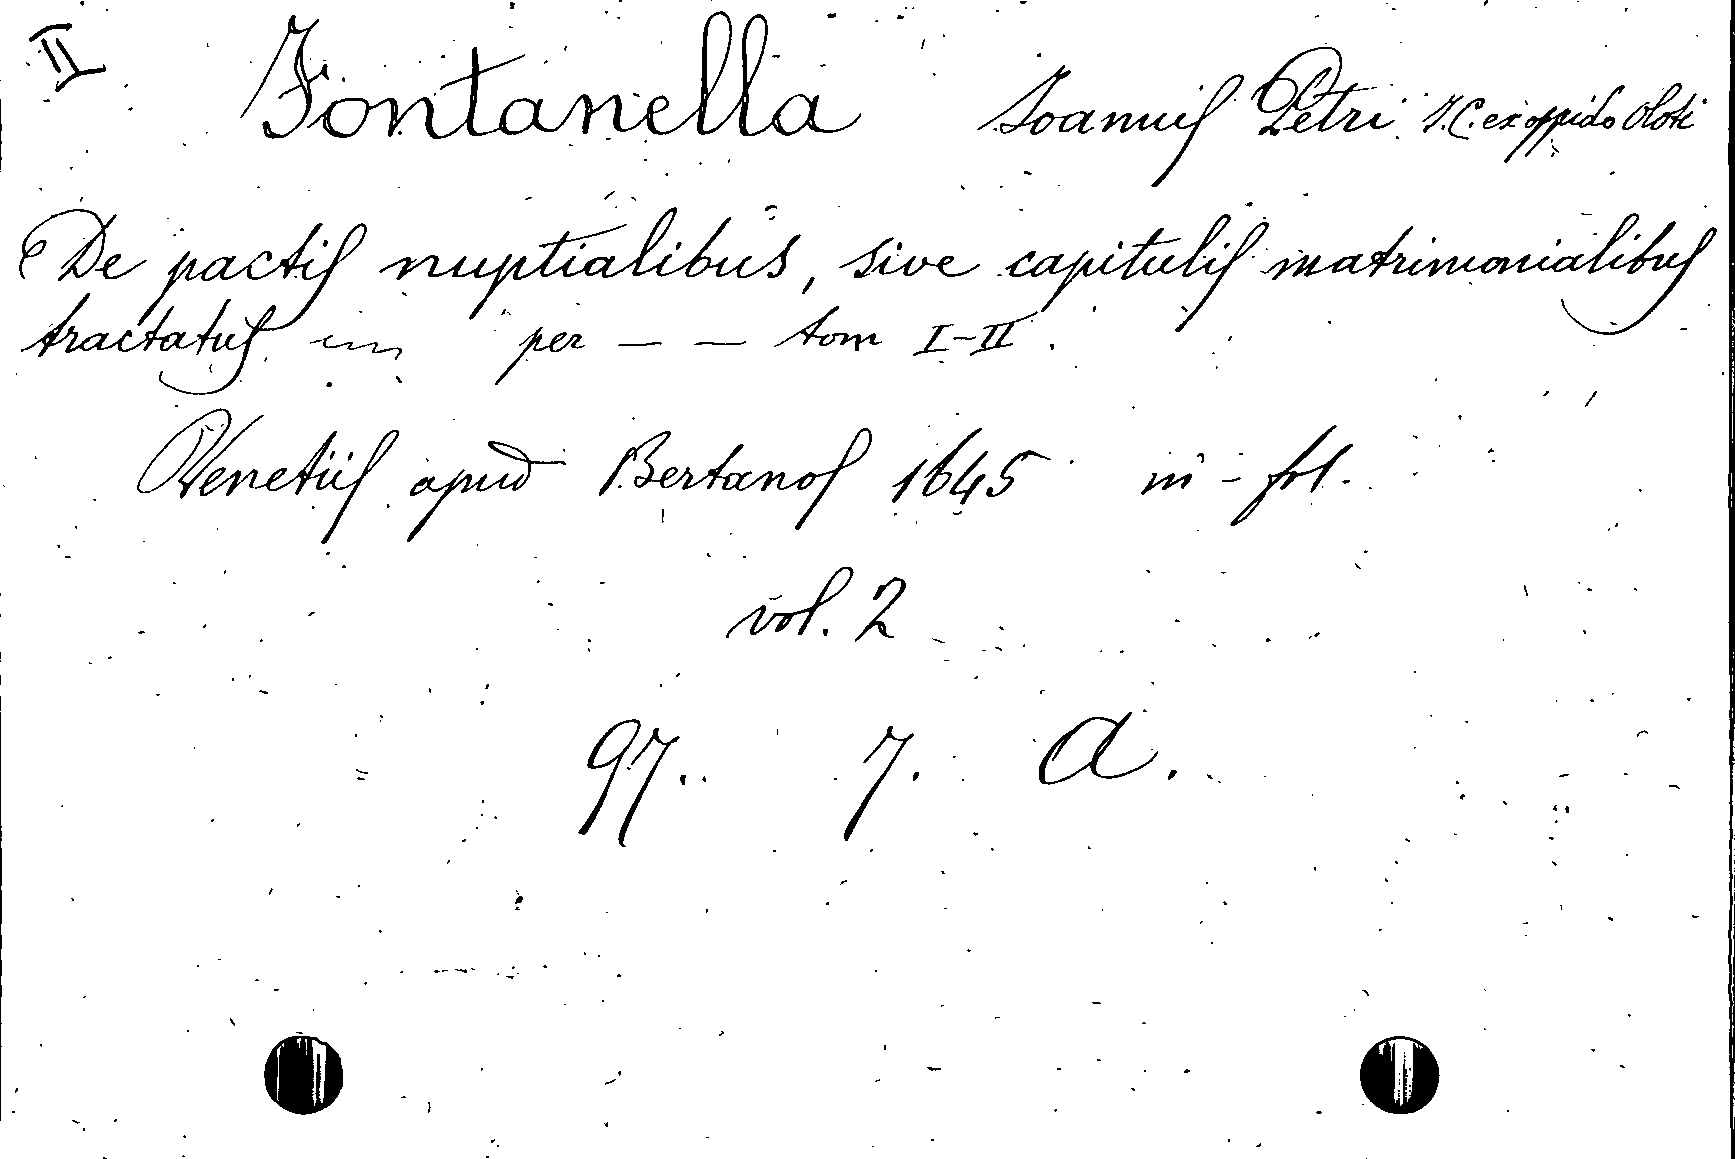 II Fontanella Joannis Petri J.C. ex oppido Oloti
De pactis nuptialibus, sive capitulis matrimonialibus
tractatus per — — tom I-II.
Venetiis apud Bertanos 1645 in-fol.
vol. 2
97. 7. A.